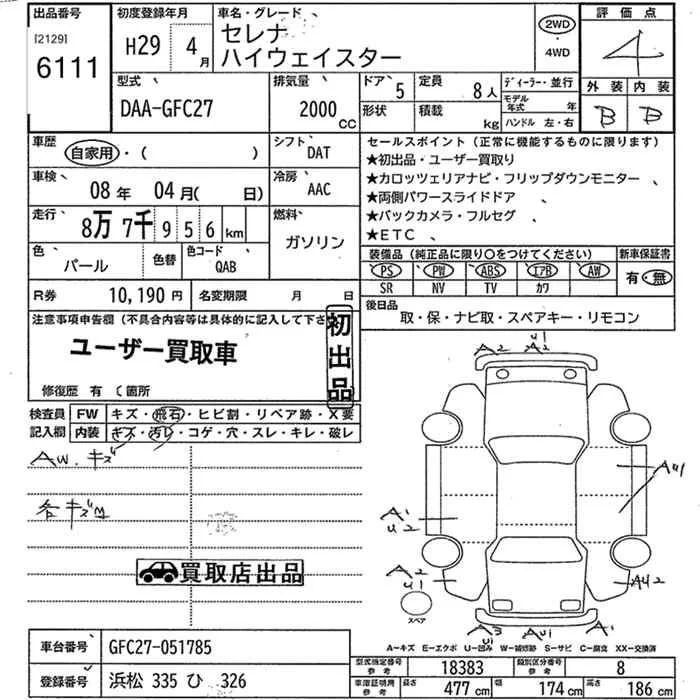 出品番号 [2129] 6111
初度登録年月 H29年 4月
車名・グレード セレナ ハイウェイスター
2WD ・ 4WD
評価点 4
外装 B 内装 B
型式 DAA-GFC27
排気量 2000 CC
ドア 5 形状
定員 8人 積載 kg
ディーラー・並行
モデル年式 年
ハンドル 左・右
車歴 自家用・( )
シフト DAT
車検 08年 04月( 日)
冷房 AAC
走行 8万7千956km
燃料 ガソリン
色 パール 色替
色コード QAB
R券 10,190円
名変期限 月 日
セールスポイント(正常に機能するものに限ります)
★初出品・ユーザー買取り
★カロッツェリアナビ・フリップダウンモニター
★両側パワースライドドア
★バックカメラ・フルセグ
★ETC
装備品(純正品に限り○をつけてください)
新車保証書
PS PW ABS エアB AW
有・無
SR NV TV カワ
後日品
取・保・ナビ取・スペアキー・リモコン
注意事項申告欄(不具合内容等は具体的に記入して下さ
初出品
ユーザー買取車
修復歴 有 ( 箇所
検査員記入欄
FW キズ・飛石・ヒビ割・リペア跡・X要
内装 キズ・汚レ・コゲ・穴・スレ・キレ・破レ
AW.キズ
各キズM
買取店出品
A2 U1 A2
AU1
A1 U2
A2 U1
AU2
スペア
A3 U1 AU1 A1
A=キズ E=エクボ U=凹み W=補修跡 S=サビ C=腐食 XX=交換済
車台番号 GFC27-051785
登録番号 浜松 335 ひ 326
型式指定番号 参考 18383
類別区分番号 参考 8
車庫証明用 参考 長さ 477cm 幅 174cm 高さ 186cm